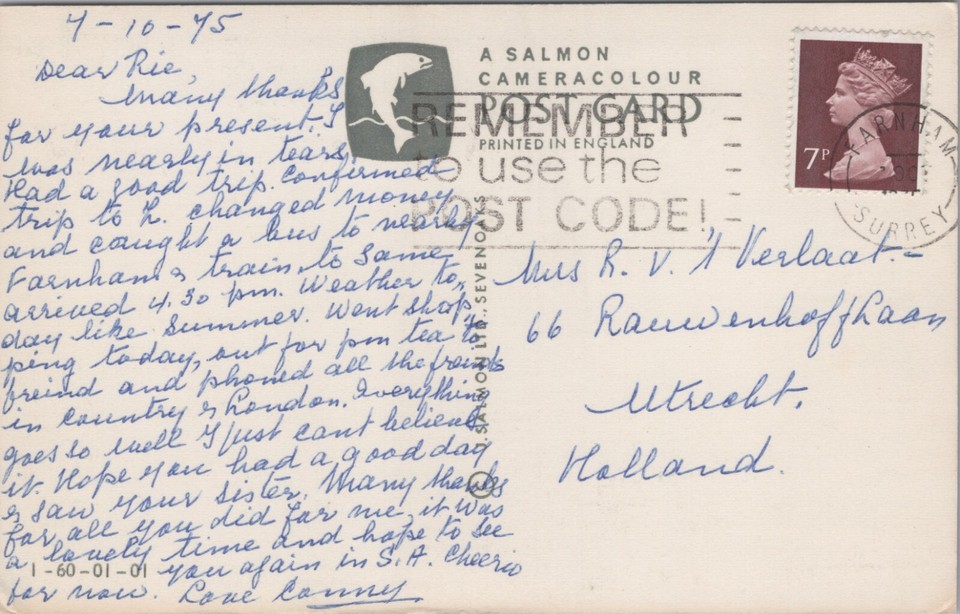 7-10-75
Dear Rie,
Many thanks
for your present. I
was nearly in tears.
Had a good trip. Confirmed
trip to L. changed money
and caught a bus to nearly
Farnham & train to same
arrived 4.30 pm. Weather to-
day like summer. Went shop-
ping today, out for pm tea to
freind and phoned all the freinds
in country & London. Everything
goes so well I just cant believe
it. Hope you had a good day
& saw your sister. Many thanks
for all you did for me, it was
a lovely time and hope to see
you again in S.A. Cheerio
for now. Love Conny
1-60-01-01
A SALMON
CAMERACOLOUR
POST CARD
PRINTED IN ENGLAND
REMEMBER
to use the
POST CODE!
7P
FARNHAM
SURREY
© J. SALMON LTD., SEVENOAKS
Mrs R. V. 't Verlaat.-
66 Rauwenhofflaan
Utrecht.
Holland.